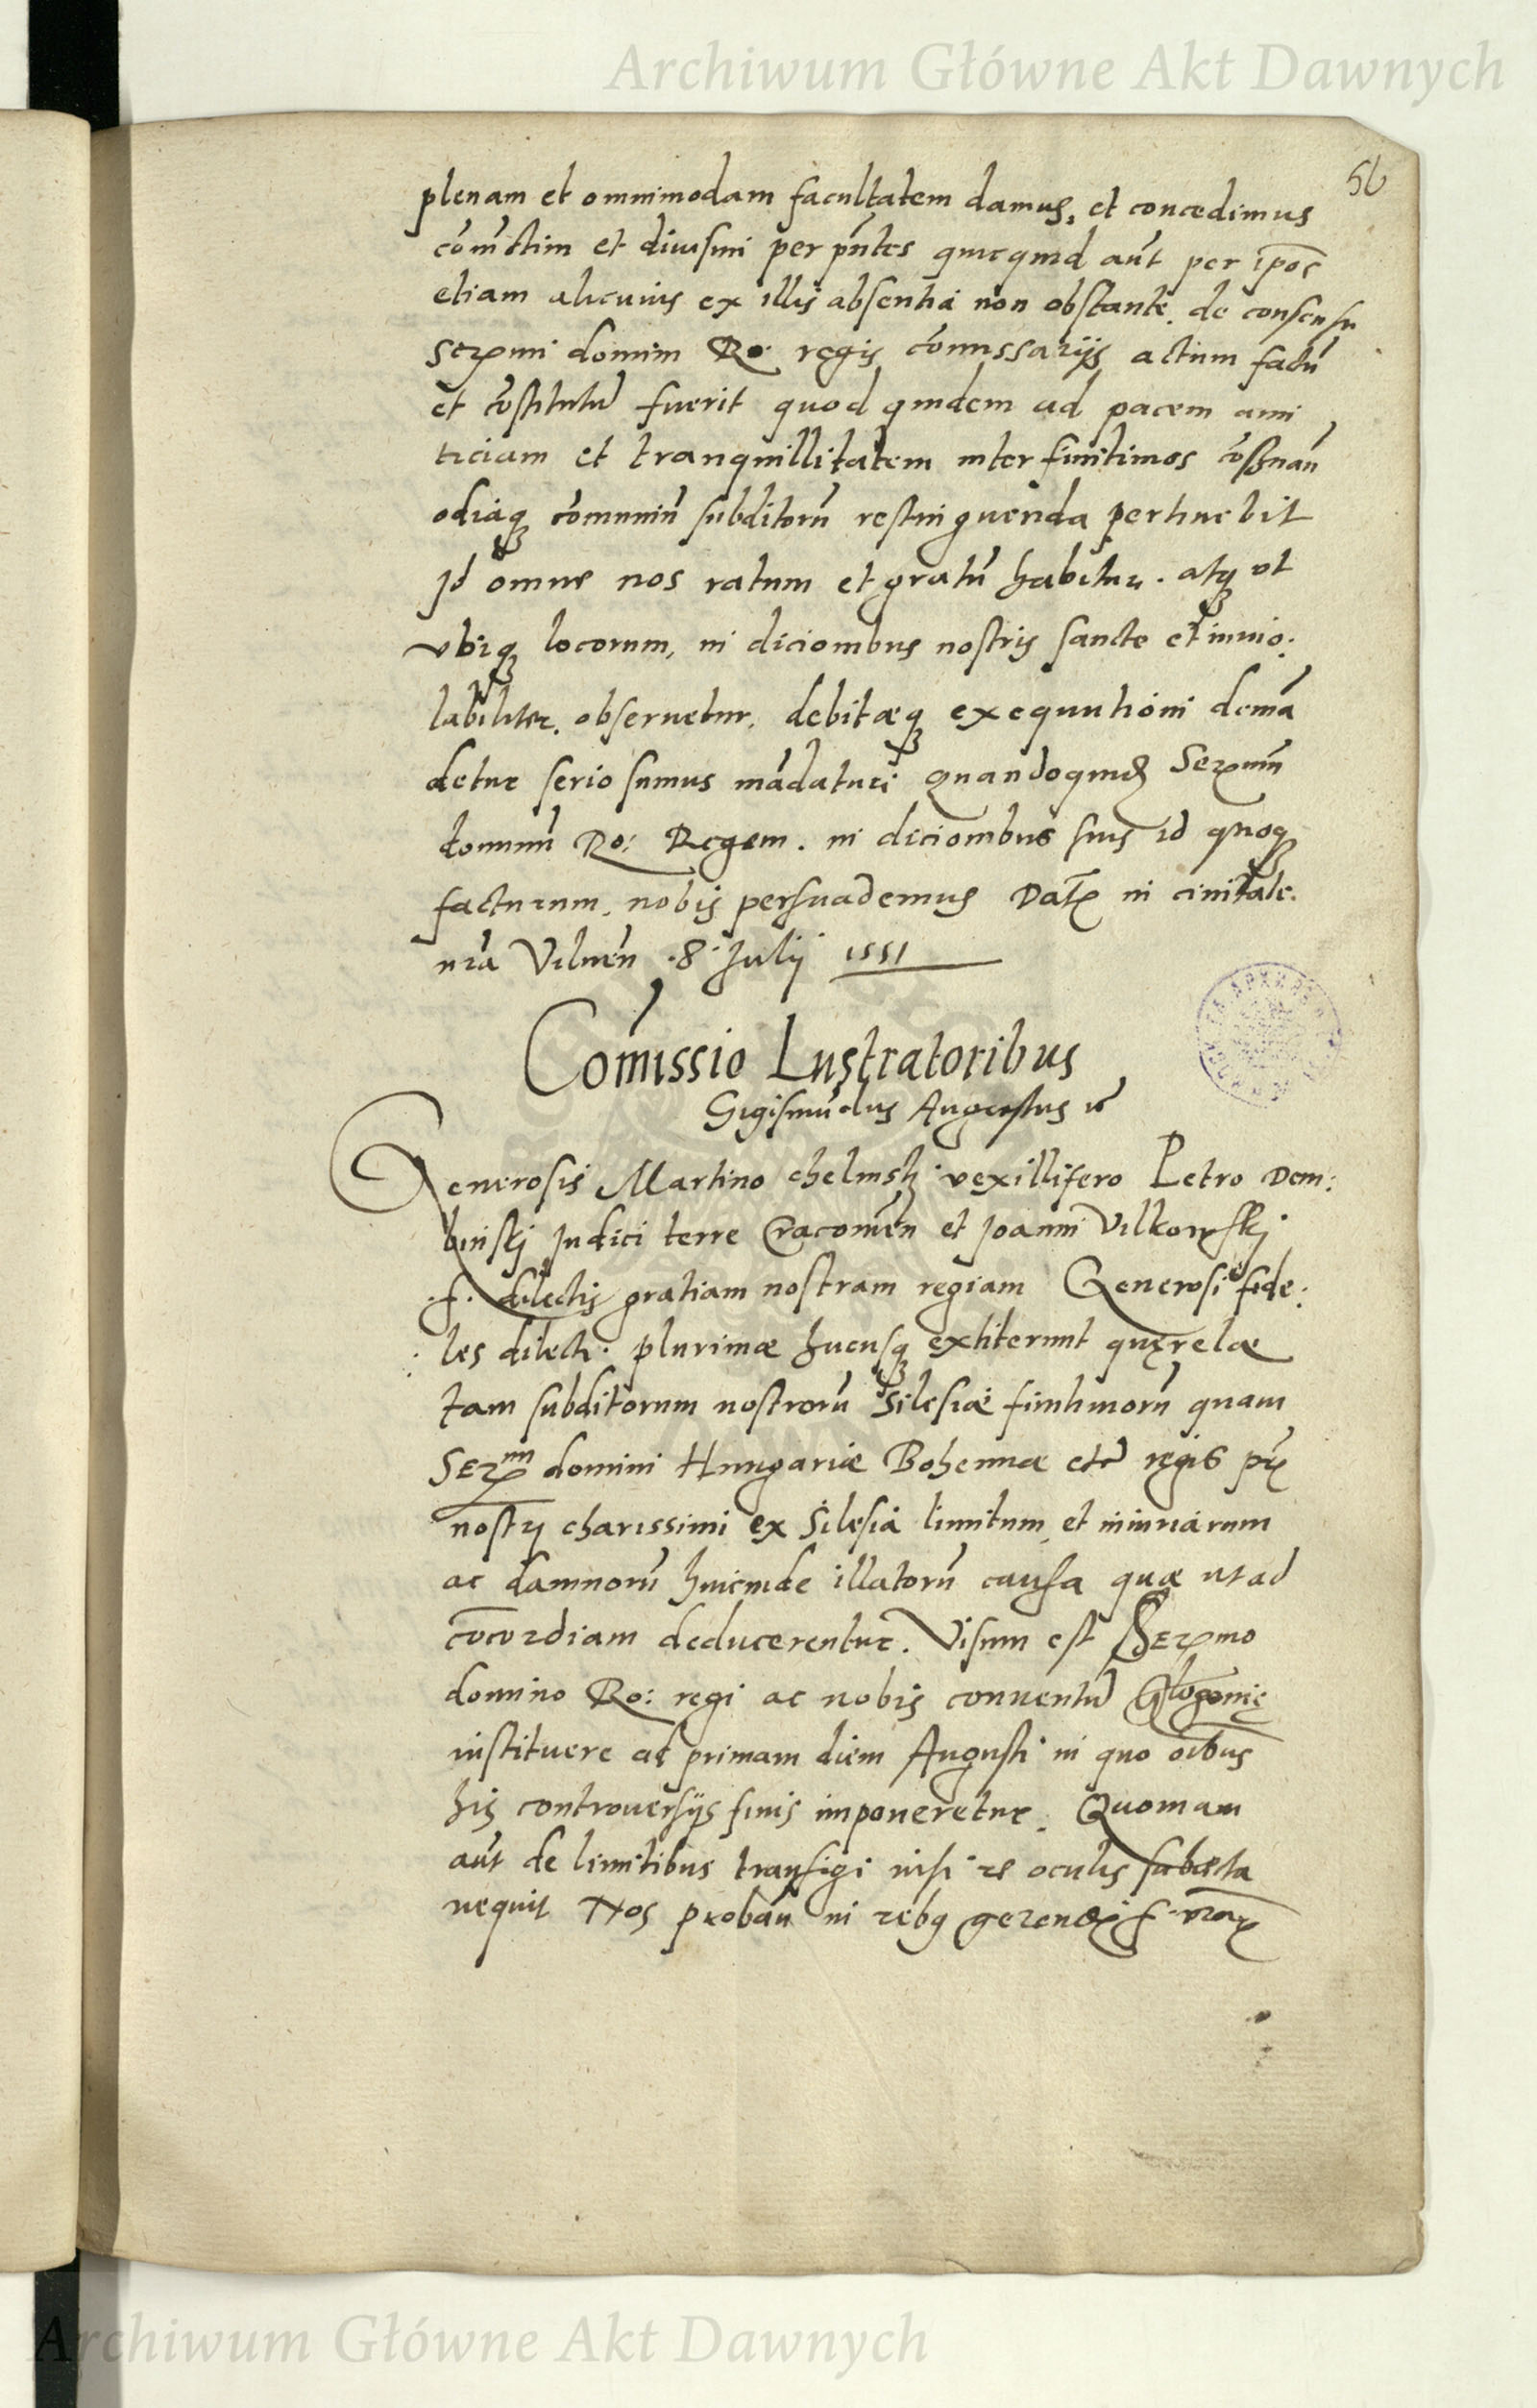 Archiwum Główne Akt Dawnych
56
plenam et omnimodam facultatem damus, et concedimus
cōiūctim et diuisim per pn̄tes quicquid aūt per ip̄os
etiam alicuius ex illis absentia non obstante. de consensu
Sermi domini Ro: regis cōmissarijs actum factū
et cōstitutū fuerit quod quidem ad pacem ami
ticiam et tranquillitatem inter finitimos
odiaq; cōmuniū subditorū restinguenda pertinebit
Id omne nos ratum et gratū habitur. atq; vt
vbiq; locorum, in dicionibus nostris sancte et inuio:
labiliter. obseruetur. debitæq; exequutioni demā
detur serio sumus mādaturi quandoquid Sermū
dominū Ro: Regem. in dicionibus suis id quoq;
facturum. nobis persuademus Dat in ciuitate.
nrā Vilnen̄ .8. Julij 1551
Com̄issio Lustratoribus
Sigismūdus Augustus
Generosis Martino Chelmskj vexillifero Petro Dem:
binskj Judici terre Cracouien̄ et Joanni Vilkowskj
.f. dilectis gratiam nostram regiam Generosi fide:
les dilecti. plurimæ hucusq; extiterunt quęrelæ
tam subditorum nostrorū Silesiæ finitimorū quam
Sermi domini Hungariæ Bohemiæ etc regis
nostri charissimi ex Silesia limitum et iniuriarum
ac damnorū hincinde illatorū causa quæ ut ad
cōcordiam deducerentur. Visum est Sermo
domino Ro: regi ac nobis conuentū Glogouię
instituere ad primam diem Augusti in quo oībus
his controuersijs finis imponeretur. Quoniam
aūt de limitibus transigi nisi re oculis subiecta
nequit Nos probān in rebq gerendis f. vrar
Archiwum Główne Akt Dawnych